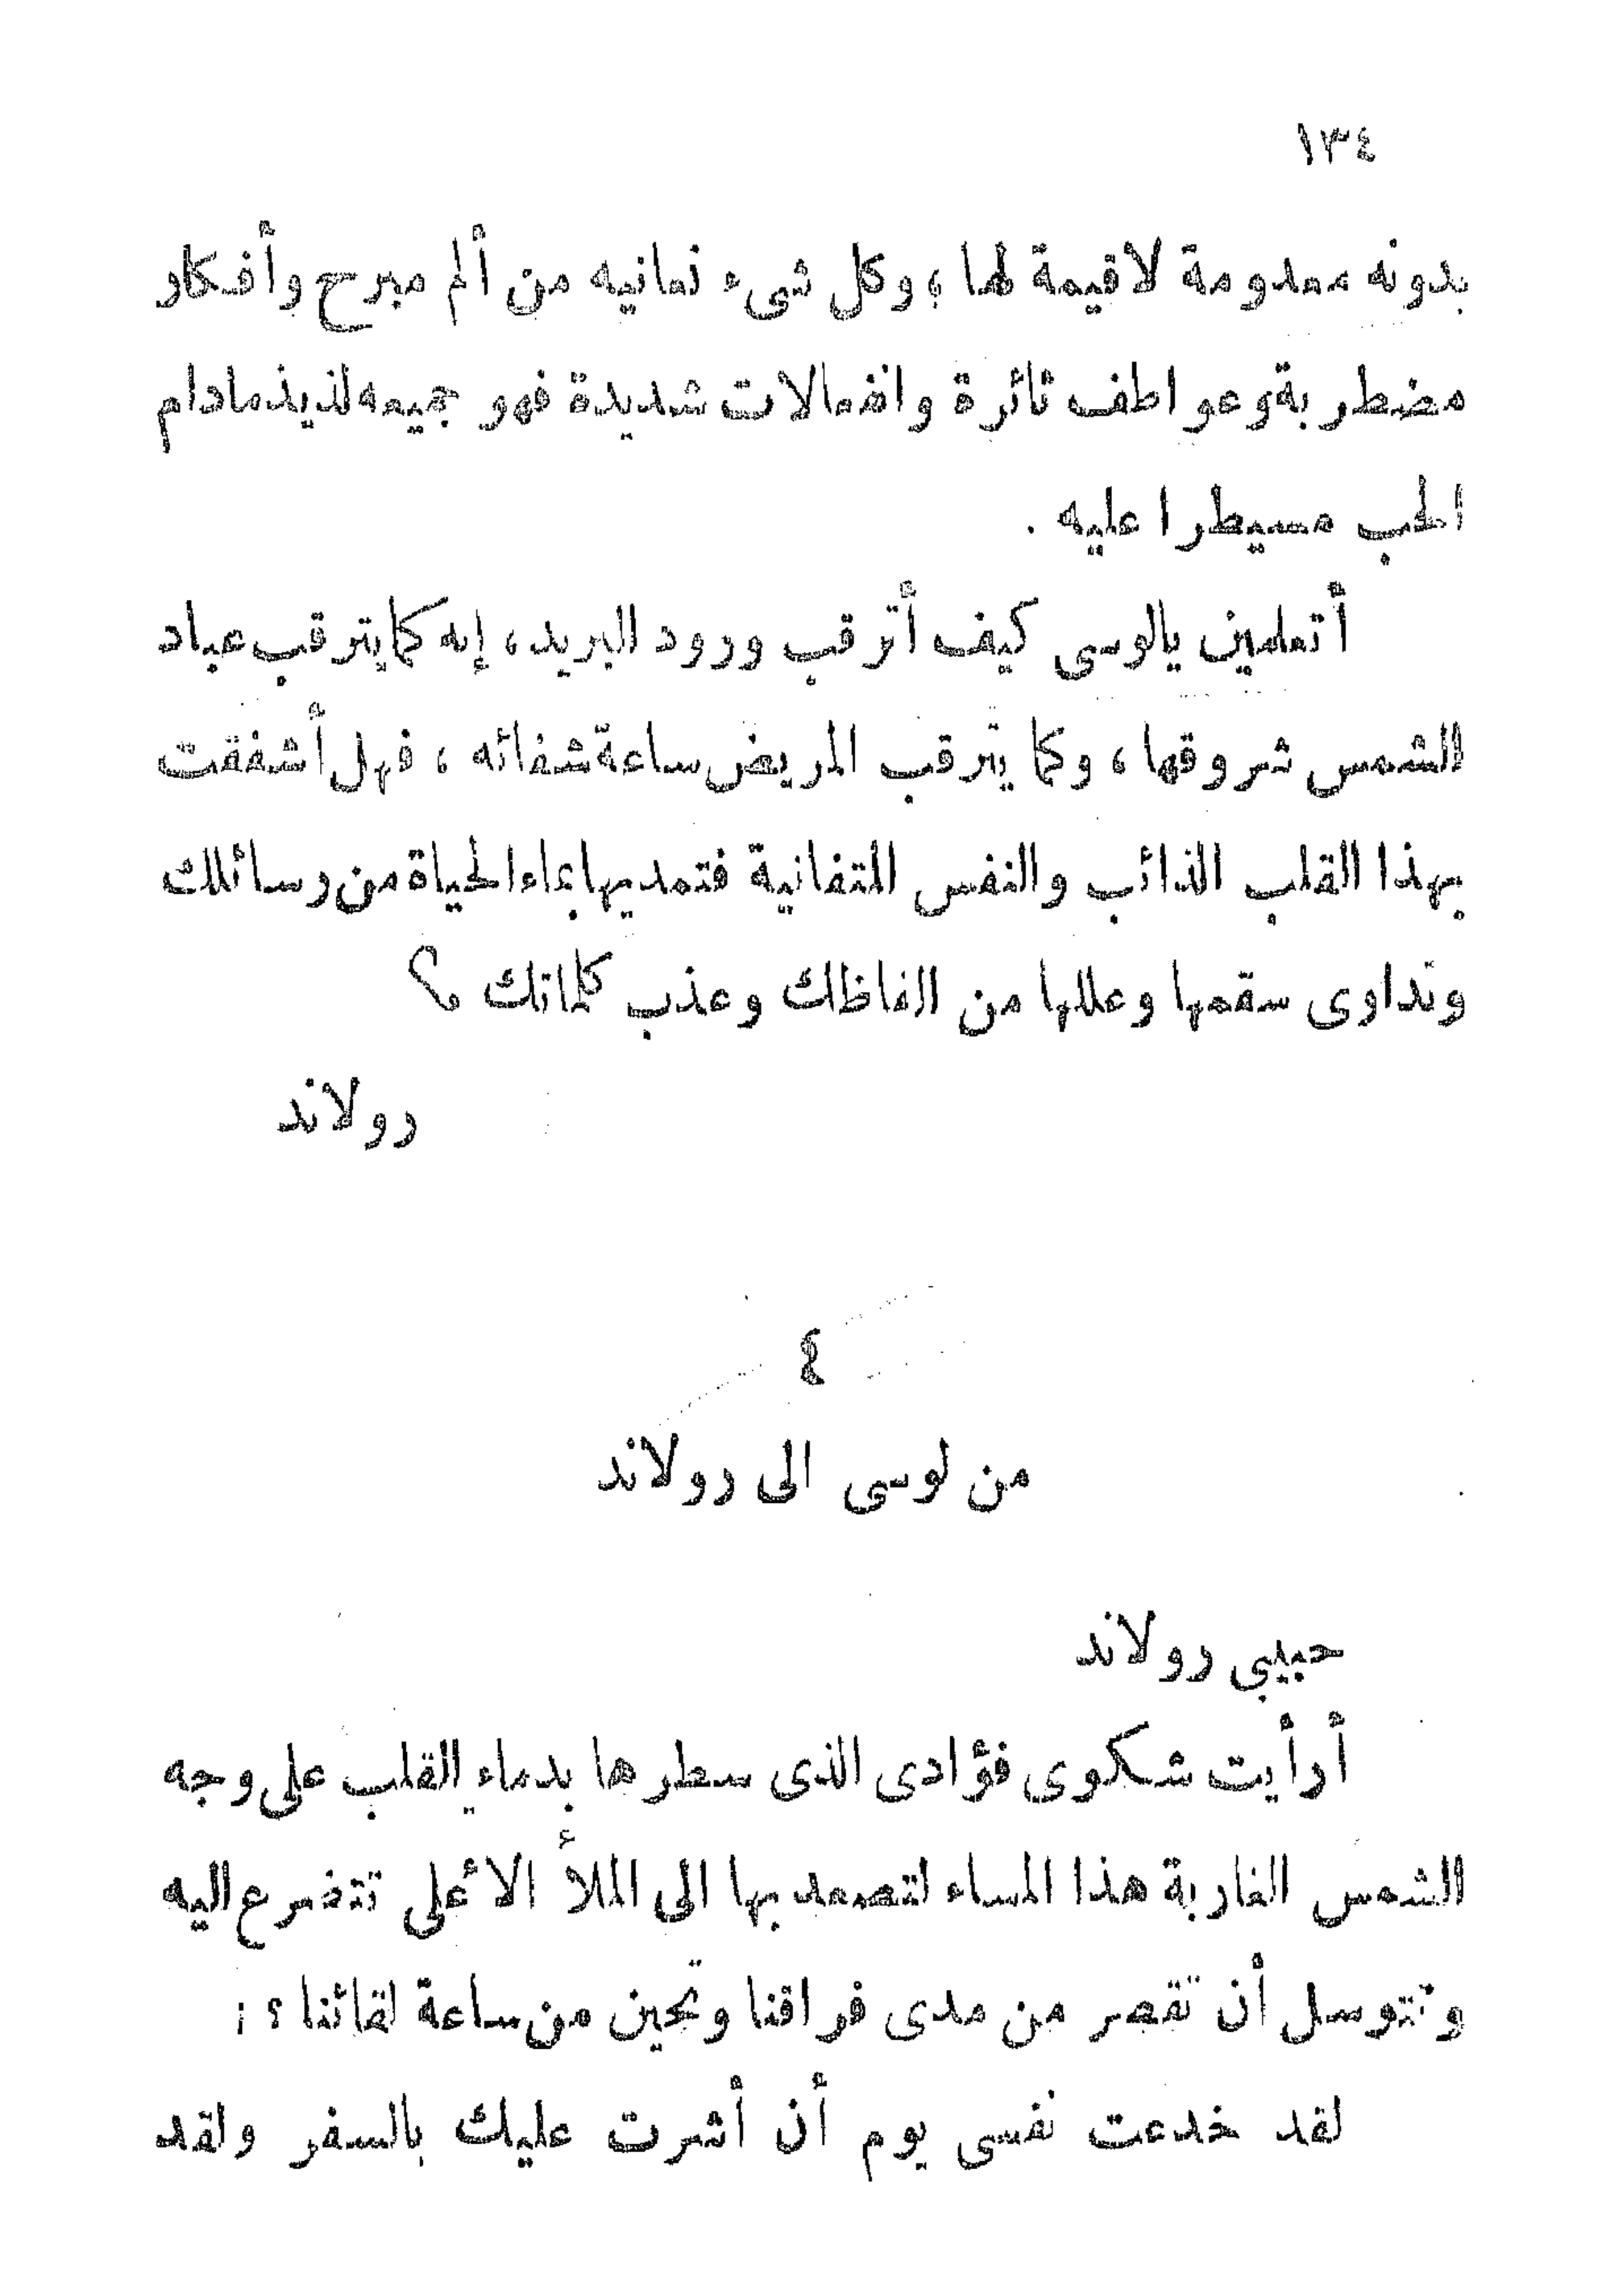 ١٣٤
بدونه معدومة لاقيمة لها ، وكل شىء نعانيه من ألم مبرح وأفكار
مضطربة وعواطف ثائرة وانفعالات شديدة فهو جميعه لذيذ مادام
الحب مسيطرا عليه .
أتعلمين يالوسى كيف أترقب ورود البريد ، إنه كما يترقب عباد
الشمس شروقها ، وكما يترقب المريض ساعة شفائه ، فهل أشفقت
بهذا القلب الذائب والنفس المتفانية فتمديها بماء الحياة من رسائلك
وتداوى سقمها وعللها من الفاظك وعذب كلماتك ؟
رولاند
٤
من لوسى الى رولاند
حبيبي رولاند
أرأيت شكوى فؤادى الذى سطرها بدماء القلب على وجه
الشمس الغاربة هذا المساء لتصعد بها الى الملأ الأعلى تتضرع اليه
وتتوسل أن تقصر من مدى فراقنا وتحين من ساعة لقائنا ؟ !
لقد خدعت نفسى يوم أن أشرت عليك بالسفر ولقد